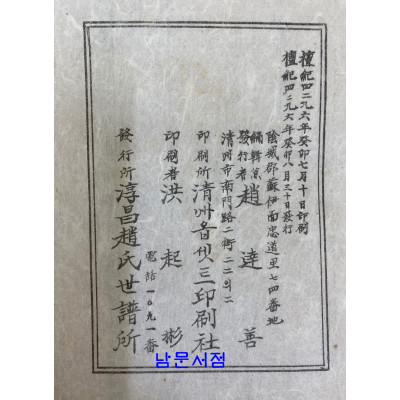 檀紀四二九六年癸卯七月十日印刷
檀紀四二九六年癸卯八月三十日發行
陰城郡蘇伊面忠道里七四番地
編輯兼
發行者 趙達善
清州市南門路二街二二의二
印刷所 清州옵셋三印刷社
印刷者 洪起彬
電話一〇九一番
發行所 淳昌趙氏世譜所
남문서점